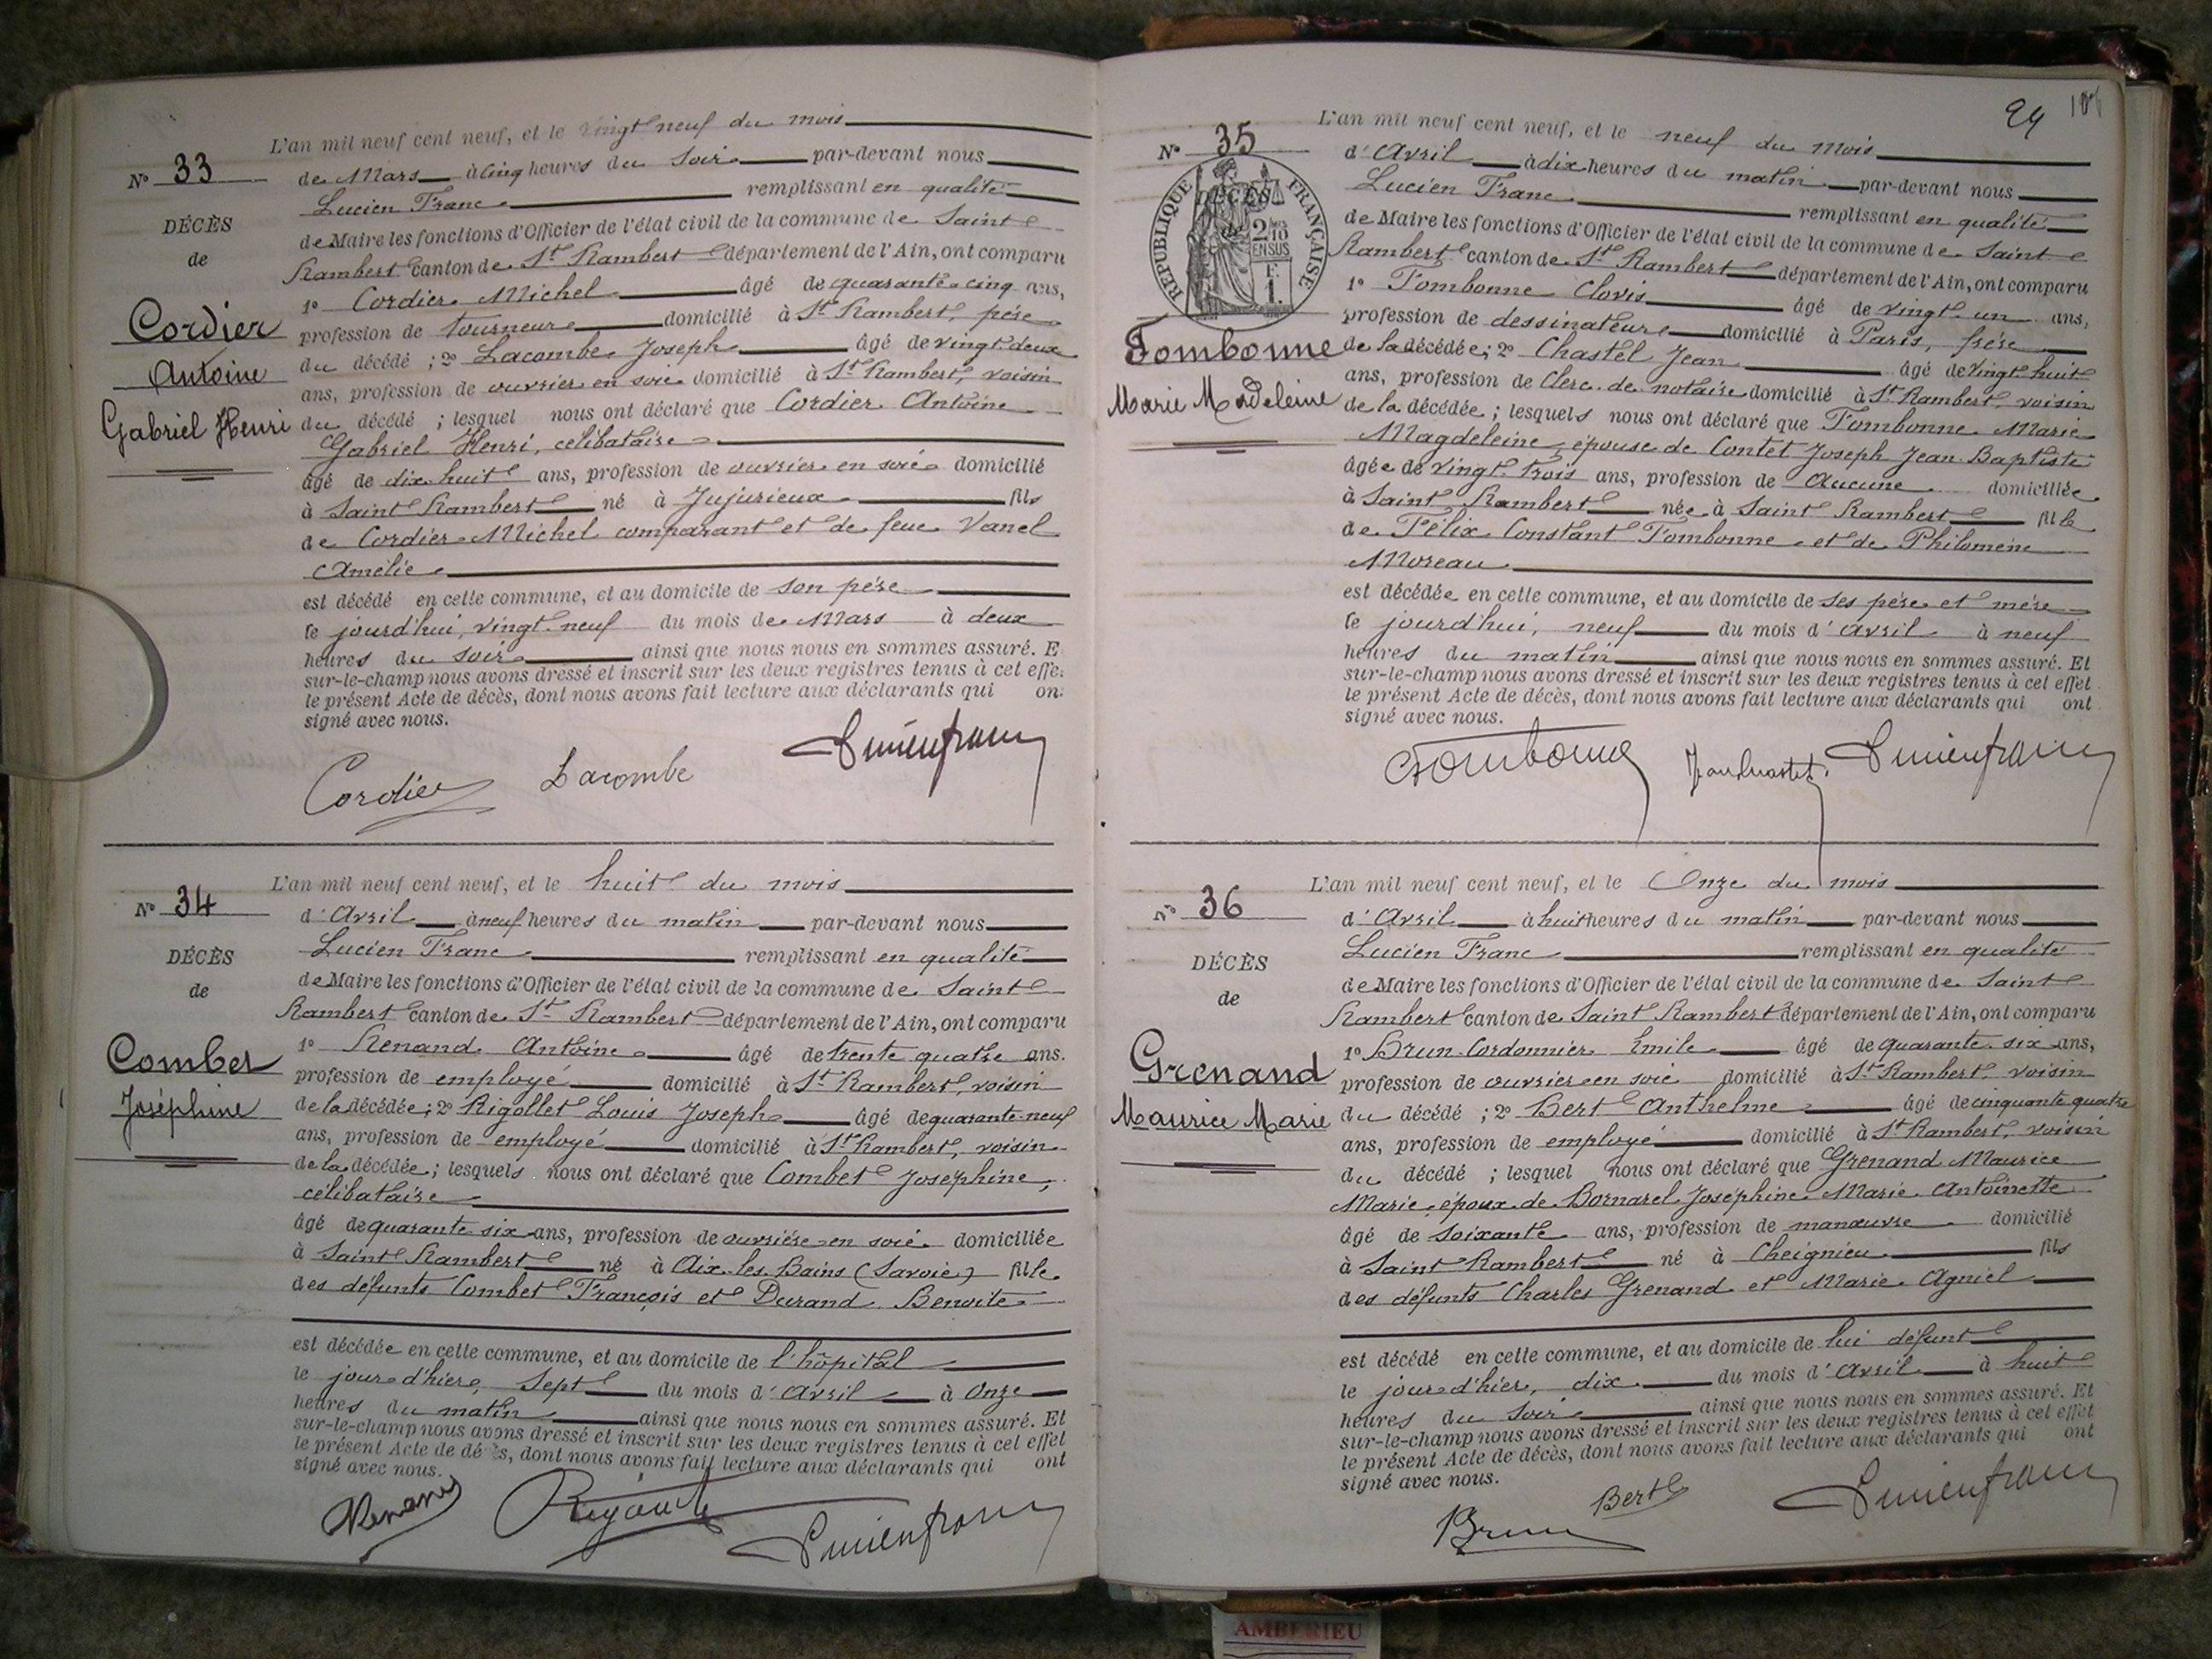 L'an mil neuf cent neuf, et le vingt neuf du mois
N° 33
de Mars à cinq heures du soir par-devant nous
Lucien Franc remplissant en qualité
DÉCÈS
de Maire les fonctions d'Officier de l'état civil de la commune de Saint
de
Rambert canton de St Rambert département de l'Ain, ont comparu
1° Cordier Michel âgé de quarante-cinq ans,
Cordier
profession de tourneur domicilié à St Rambert, père
du décédé ; 2° Lacombe Joseph âgé de vingt-deux
Antoine
ans, profession de ouvrier en soie domicilié à St Rambert, voisin
Gabriel Henri
du décédé ; lesquel nous ont déclaré que Cordier Antoine
Gabriel Henri, célibataire
âgé de dix-huit ans, profession de ouvrier en soie domicilié
à Saint Rambert né à Jujurieux fils
de Cordier Michel comparant et de feue Vanel
Amélie
est décédé en cette commune, et au domicile de son père
le jourd'hui, vingt-neuf du mois de Mars à deux
heures du soir ainsi que nous nous en sommes assuré. E
sur-le-champ nous avons dressé et inscrit sur les deux registres tenus à cet effe
le présent Acte de décès, dont nous avons fait lecture aux déclarants qui on
signé avec nous.
Cordier Lacombe Lucien franc
L'an mil neuf cent neuf, et le huit du mois
N° 34
d'Avril à neuf heures du matin par-devant nous
Lucien Franc remplissant en qualité
DÉCÈS
de Maire les fonctions d'Officier de l'état civil de la commune de Saint
de
Rambert canton de St Rambert département de l'Ain, ont comparu
1° Renand Antoine âgé de trente quatre ans.
Combet
profession de employé domicilié à St Rambert, voisin
Joséphine
de la décédée ; 2° Rigollet Louis Joseph âgé de quarante-neuf
ans, profession de employé domicilié à St Rambert, voisin
de la décédée ; lesquels nous ont déclaré que Combet Joséphine,
célibataire
âgé de quarante six ans, profession de ouvrière en soie domiciliée
à Saint Rambert né à Aix-les-Bains (Savoie) fille
des défunts Combet François et Durand Benoite
est décédée en cette commune, et au domicile de l'hôpital
le jour d'hier, Sept du mois d'Avril à Onze
heures du matin ainsi que nous nous en sommes assuré. Et
sur-le-champ nous avons dressé et inscrit sur les deux registres tenus à cet effet
le présent Acte de décès, dont nous avons fait lecture aux déclarants qui ont
signé avec nous.
Renand Lucien franc
24
L'an mil neuf cent neuf, et le neuf du mois
N° 35
d'Avril à dix heures du matin par-devant nous
Lucien Franc remplissant en qualité
RÉPUBLIQUE FRANÇAISE
DÉCÈS
2/10
EN SUS
F.
1.
de Maire les fonctions d'Officier de l'état civil de la commune de Saint
Rambert canton de St Rambert département de l'Ain, ont comparu
1° Tombonne Clovis âgé de vingt-un ans,
profession de dessinateur domicilié à Paris, frère
Tombonne
de la décédée ; 2° Chastel Jean âgé de vingt-huit
ans, profession de Clerc de notaire domicilié à St Rambert, voisin
Marie Madeleine
de la décédée ; lesquels nous ont déclaré que Tombonne Marie
Magdeleine, épouse de Contet Joseph Jean-Baptiste
âgée de vingt-trois ans, profession de Aucune domiciliée
à Saint Rambert née à Saint Rambert fille
de Félix Constant Tombonne et de Philomène
Moreau
est décédée en cette commune, et au domicile de ses père et mère
le jourd'hui, neuf du mois d'avril à neuf
heures du matin ainsi que nous nous en sommes assuré. Et
sur-le-champ nous avons dressé et inscrit sur les deux registres tenus à cet effet
le présent Acte de décès, dont nous avons fait lecture aux déclarants qui ont
signé avec nous.
Tombonne Jean Chastel Lucien franc
L'an mil neuf cent neuf, et le Onze du mois
N° 36
d'Avril à huit heures du matin par-devant nous
Lucien Franc remplissant en qualité
DÉCÈS
de Maire les fonctions d'Officier de l'état civil de la commune de Saint
de
Rambert canton de Saint Rambert département de l'Ain, ont comparu
1° Brun-Cordonnier Emile âgé de quarante-six ans,
Grenand
profession de ouvrier en soie domicilié à St Rambert, voisin
Maurice Marie
du décédé ; 2° Bert Anthelme âgé de cinquante quatre
ans, profession de employé domicilié à St Rambert, voisin
du décédé ; lesquel nous ont déclaré que Grenand Maurice
Marie, époux de Bornarel Joséphine Marie Antoinette
âgé de soixante ans, profession de manœuvre domicilié
à Saint Rambert né à Cheignieu fils
des défunts Charles Grenand et Marie Agniel
est décédé en cette commune, et au domicile de lui défunt
le jour d'hier, dix du mois d'Avril à huit
heures du soir ainsi que nous nous en sommes assuré. Et
sur-le-champ nous avons dressé et inscrit sur les deux registres tenus à cet effet
le présent Acte de décès, dont nous avons fait lecture aux déclarants qui ont
signé avec nous.
Brun Bert Lucien franc
AMBERIEU